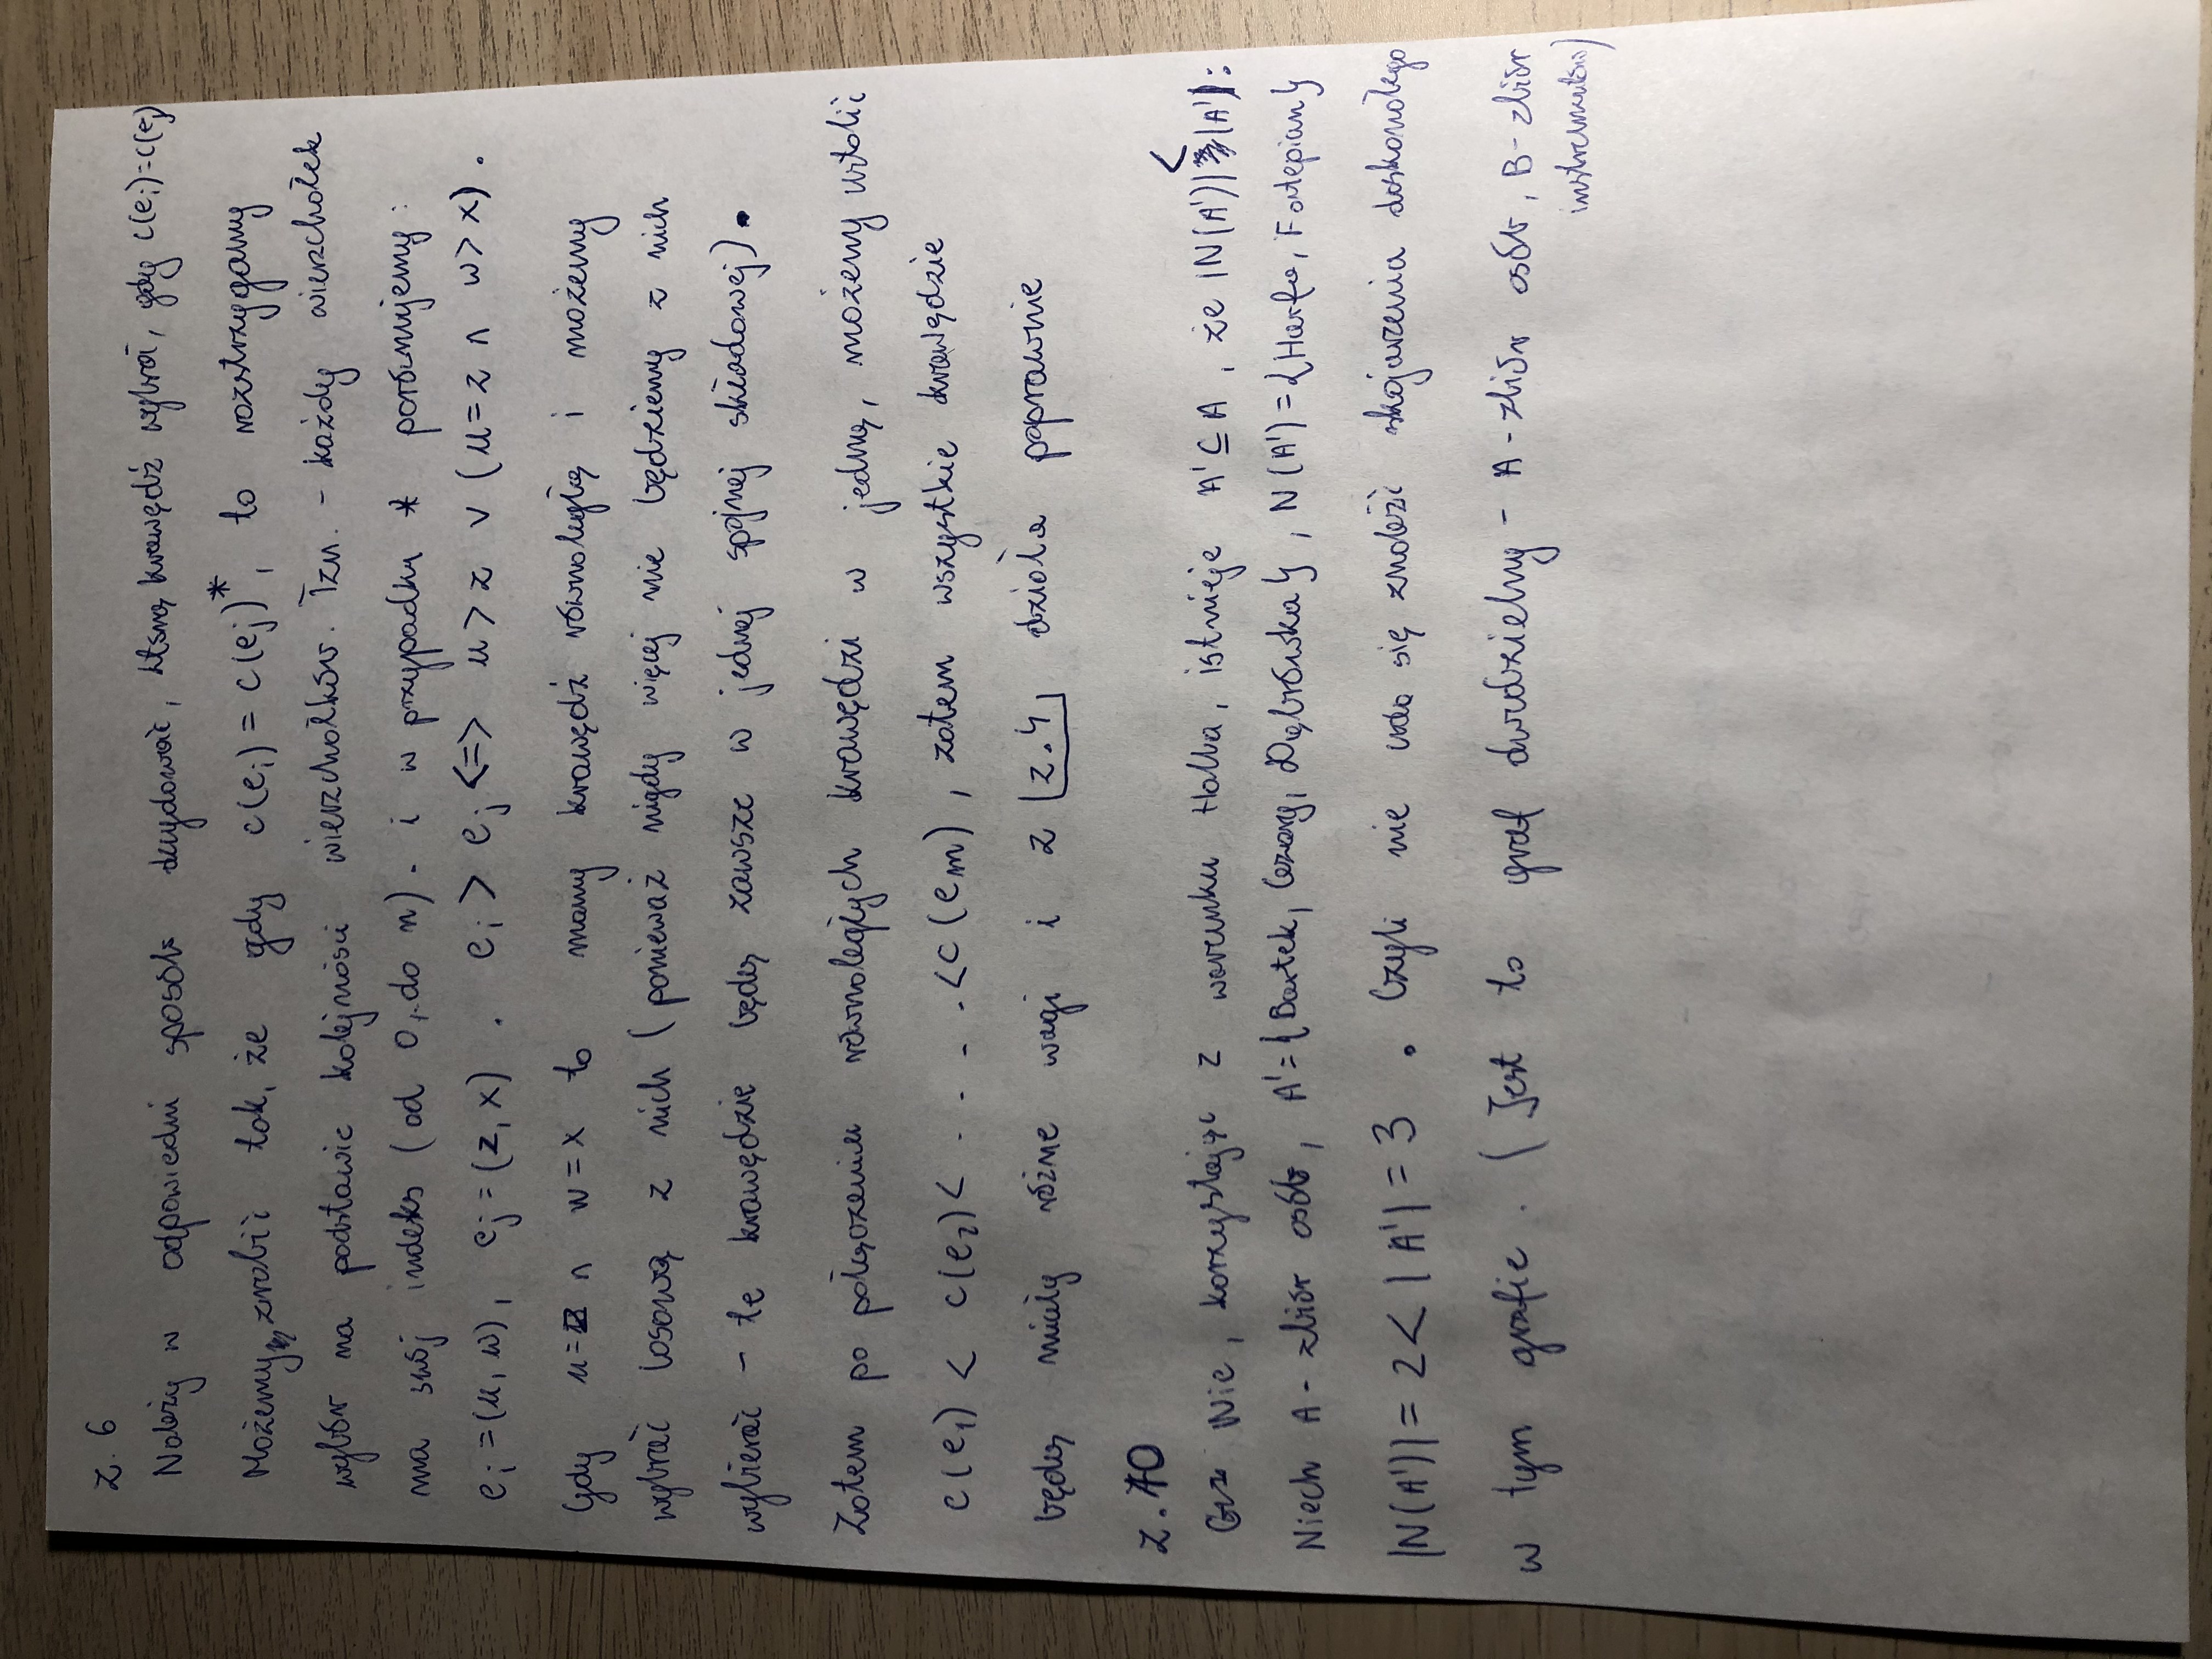 z. 6
Należy w odpowiedni sposób decydować, którą krawędź wybrać, gdy c(e_i)=c(e_j)
Możemy zrobić tak, że gdy c(e_i) = c(e_j)*, to rozstrzygamy
wybór na podstawie kolejności wierzchołków. Tzn. - każdy wierzchołek
ma swój indeks (od 0,.. do n). i w przypadku * porównujemy:
e_i = (u, w), e_j = (z, x) . e_i > e_j <=> u > z ∨ (u = z ∧ w > x).
Gdy u = z ∧ w = x to mamy krawędź równoległą i możemy
wybrać losową z nich (ponieważ nigdy więcej nie będziemy z nich
wybierać - te krawędzie będą zawsze w jednej spójnej składowej).
Zatem po połączeniu równoległych krawędzi w jedną, możemy ustalić
c(e_1) < c(e_2) < . . . . . < c(e_m), zatem wszystkie krawędzie
będą miały różne wagi i z z.4 działa poprawnie
z. 10
Nie, korzystając z warunku Halla, istnieje A' ⊆ A, że |N(A')| < |A'|:
Niech A - zbiór osób, A' = {Bartek, Cezary, Dąbrówka}, N(A') = {Harfa, Fortepian}
|N(A')| = 2 < |A'| = 3 . Czyli nie uda się znaleźć skojarzenia doskonałego
w tym grafie . (Jest to graf dwudzielny - A - zbiór osób, B - zbiór
instrumentów)